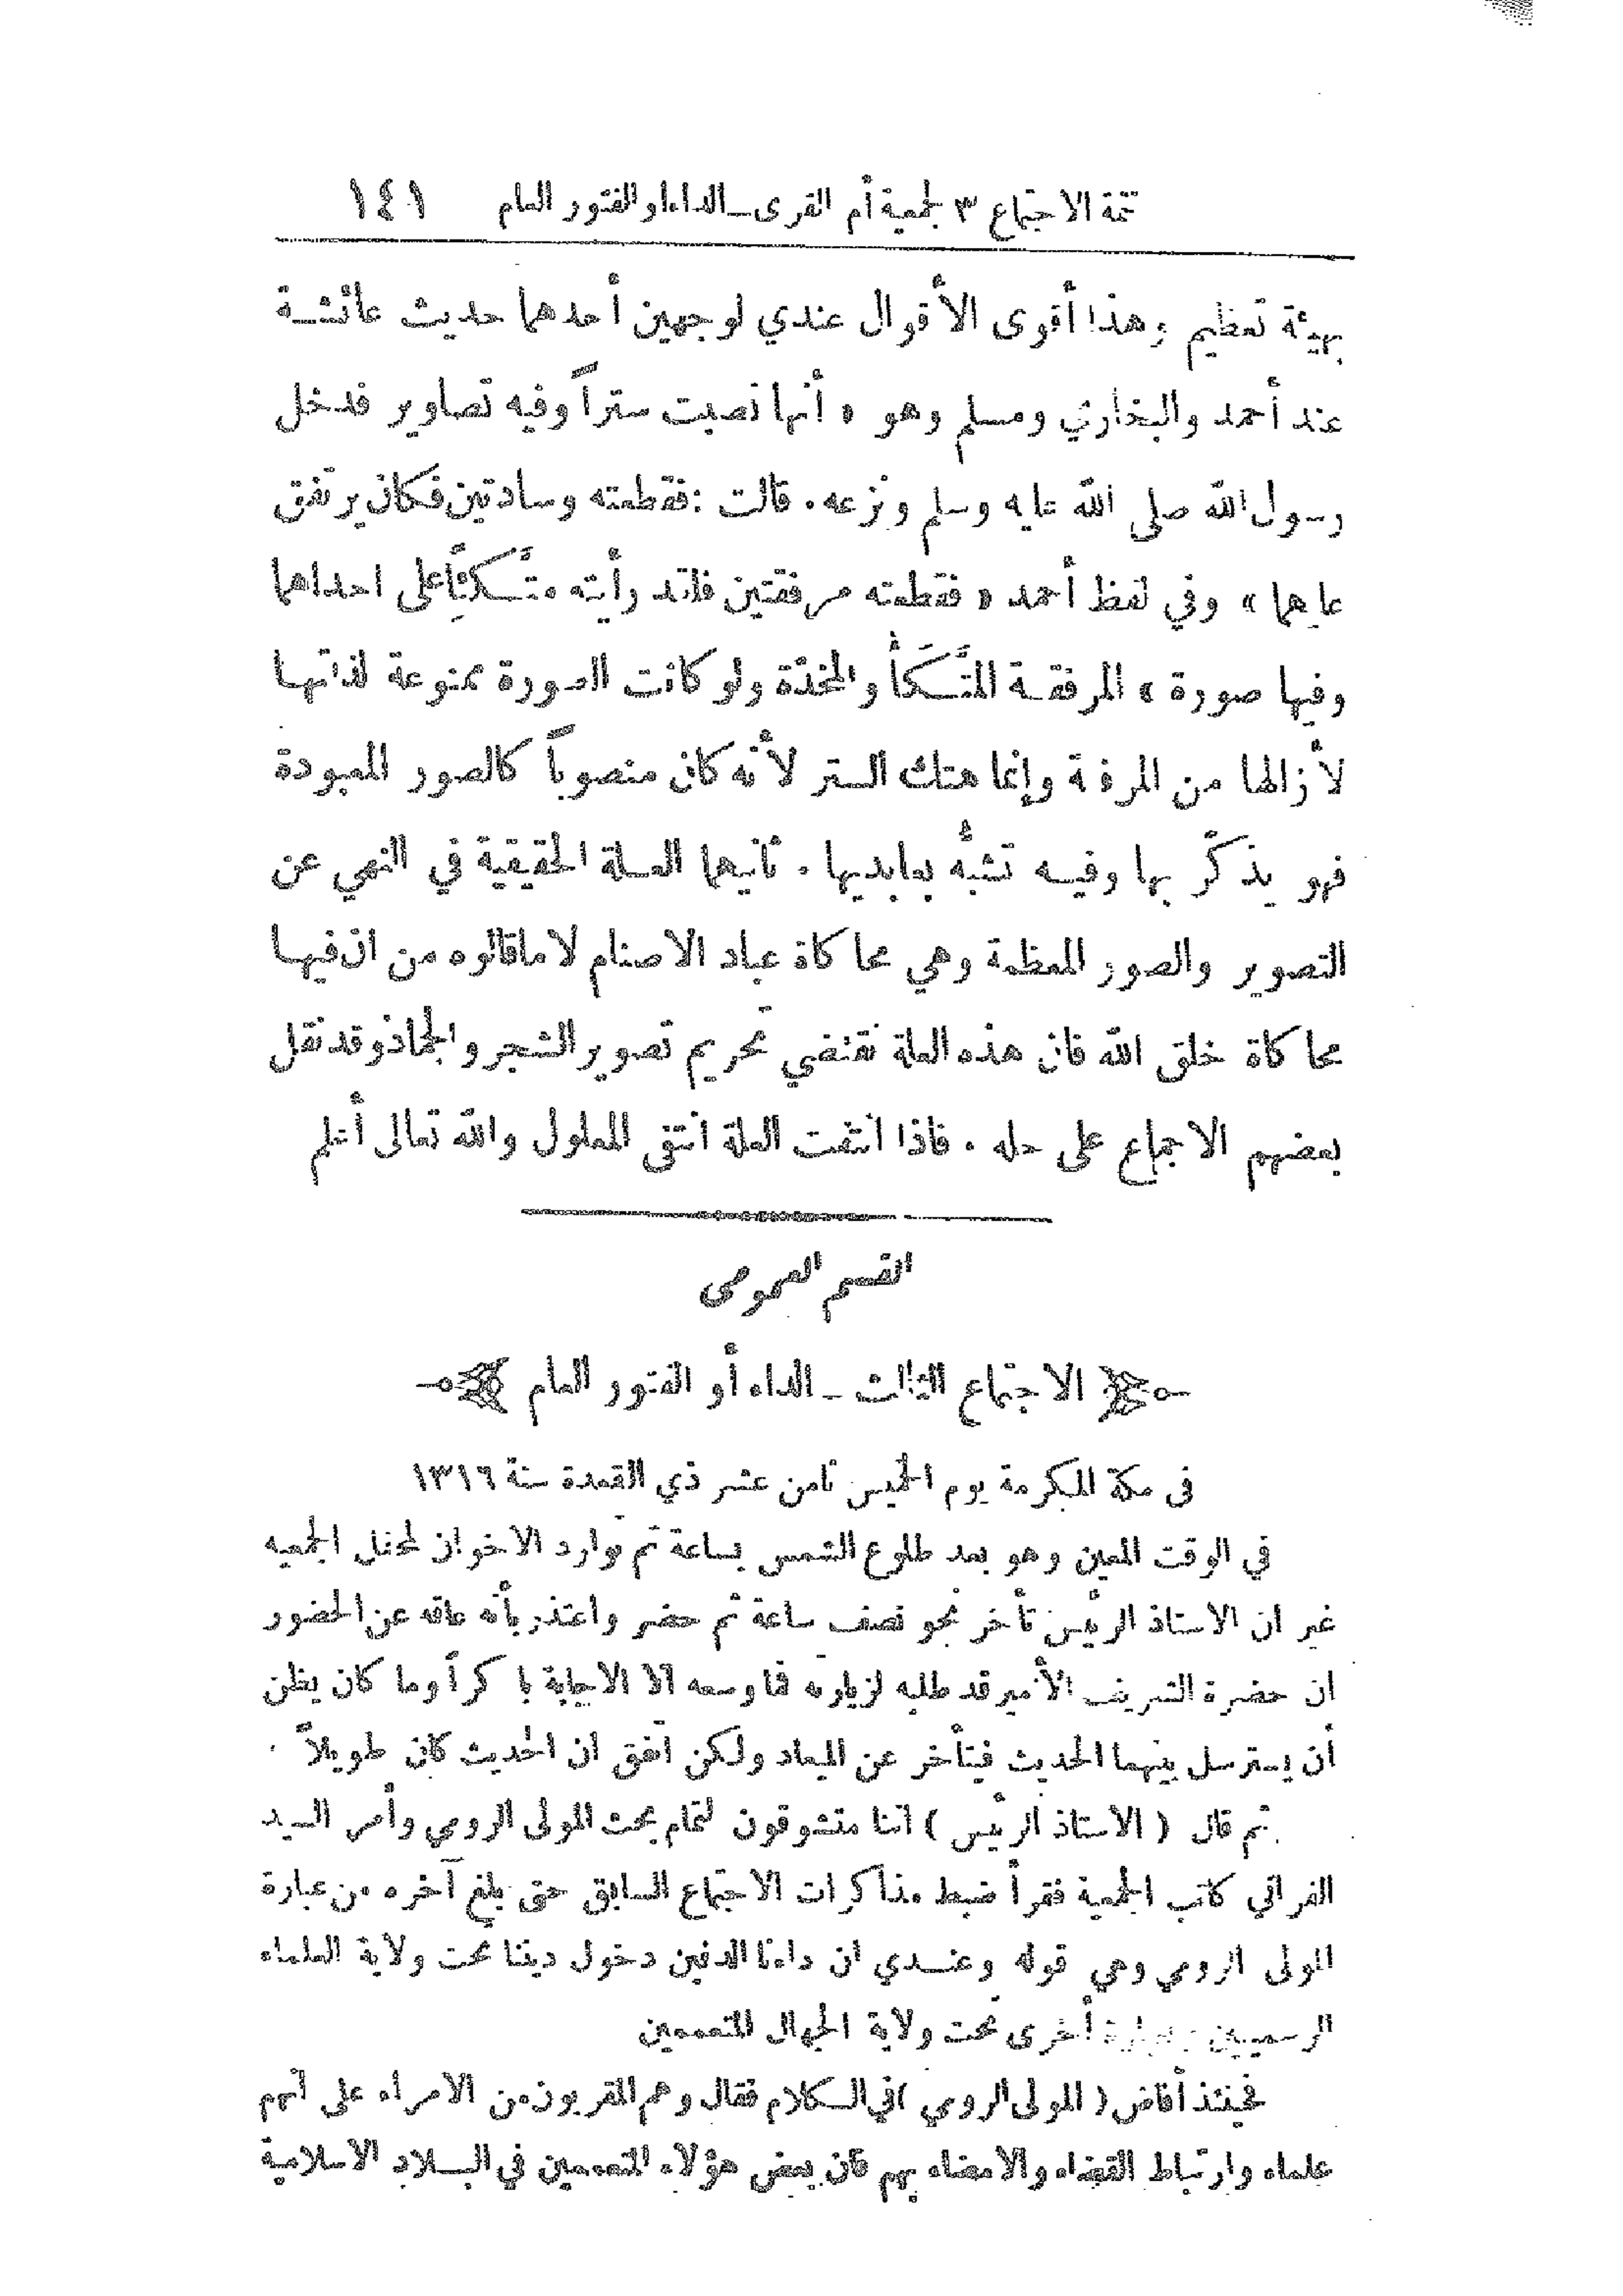 تتمة الاجتماع ٣ لجمعية أم القرى ـ الداء او الفتور العام ١٤١
بهيئة تعظيم وهذا أقوى الأقوال عندي لوجهين أحدهما حديث عائشة
عند أحمد والبخاري ومسلم وهو « أنها نصبت ستراً وفيه تصاوير فدخل
رسول الله صلى الله عليه وسلم ونزعه . قالت : فقطعته وسادتين فكان يرتفق
عليهما » وفي لفظ أحمد « فقطعته مرفقتين فلقد رأيته متَّكئاً على احداهما
وفيها صورة » المرفقة المتَّكَأ والمخدّة ولو كانت الصورة ممنوعة لذاتها
لأزالها من المرفقة وإنما هتك الستر لأنه كان منصوباً كالصور المعبودة
فهو يذكّر بها وفيه تشبُّه بعابديها . ثانيهما العلة الحقيقية في النهي عن
التصوير والصور المعظمة وهي محاكاة عباد الاصنام لا ماقالوه من ان فيها
محاكاة خلق الله فان هذه العلة تقتضي تحريم تصوير الشجر والجماد وقد نقل
بعضهم الاجماع على حله . فاذا انتفت العلة انتفى المعلول والله تعالى أعلم
القسم العمومى
الاجتماع الثالث ـ الداء أو الفتور العام
فى مكة المكرمة يوم الخميس ثامن عشر ذي القعدة سنة ١٣١٦
في الوقت المعين وهو بعد طلوع الشمس بساعة تم توارد الاخوان لمحفل الجمعيه
غير ان الاستاذ الرئيس تأخر نحو نصف ساعة ثم حضر واعتذر بأنه عاقه عن الحضور
ان حضرة الشريف الأمير قد طلبه لزيارته فما وسعه الا الاجابة باكراً وما كان يظن
أن يسترسل بينهما الحديث فيتأخر عن الميعاد ولكن اتفق ان الحديث كان طويلاً .
ثم قال ( الاستاذ الرئيس ) اننا متشوقون لتمام بحث المولى الرومي وأمر السيد
الفراتي كاتب الجمعية فقرأ ضبط مذاكرات الاجتماع السابق حتى بلغ آخره من عبارة
المولى الرومي وهي قوله وعندي ان داءنا الدفين دخول ديننا تحت ولاية العلماء
الرسميين وبعبارة أخرى تحت ولاية الجهال المتعممين
فحينئذ أفاض ( المولى الرومي ) في الكلام فقال وهم المقربون من الامراء على انهم
علماء وارتباط القضاء والامضاء بهم فان بعض هؤلاء المتعممين في البلاد الاسلامية